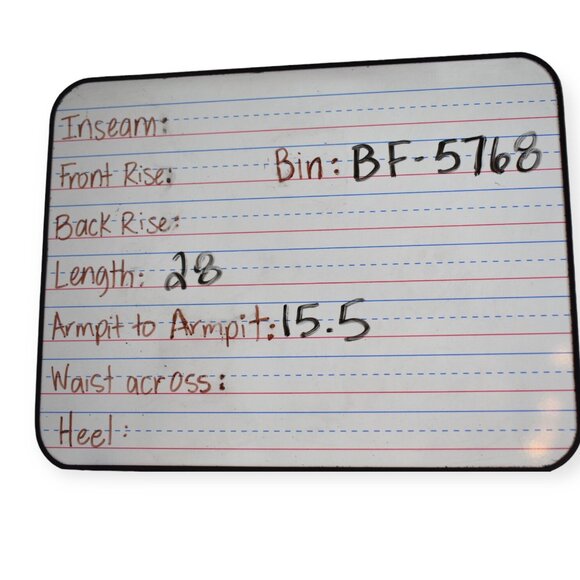 Inseam:
Front Rise: Bin: BF-5768
Back Rise:
Length: 28
Armpit to Armpit: 15.5
Waist across:
Heel: